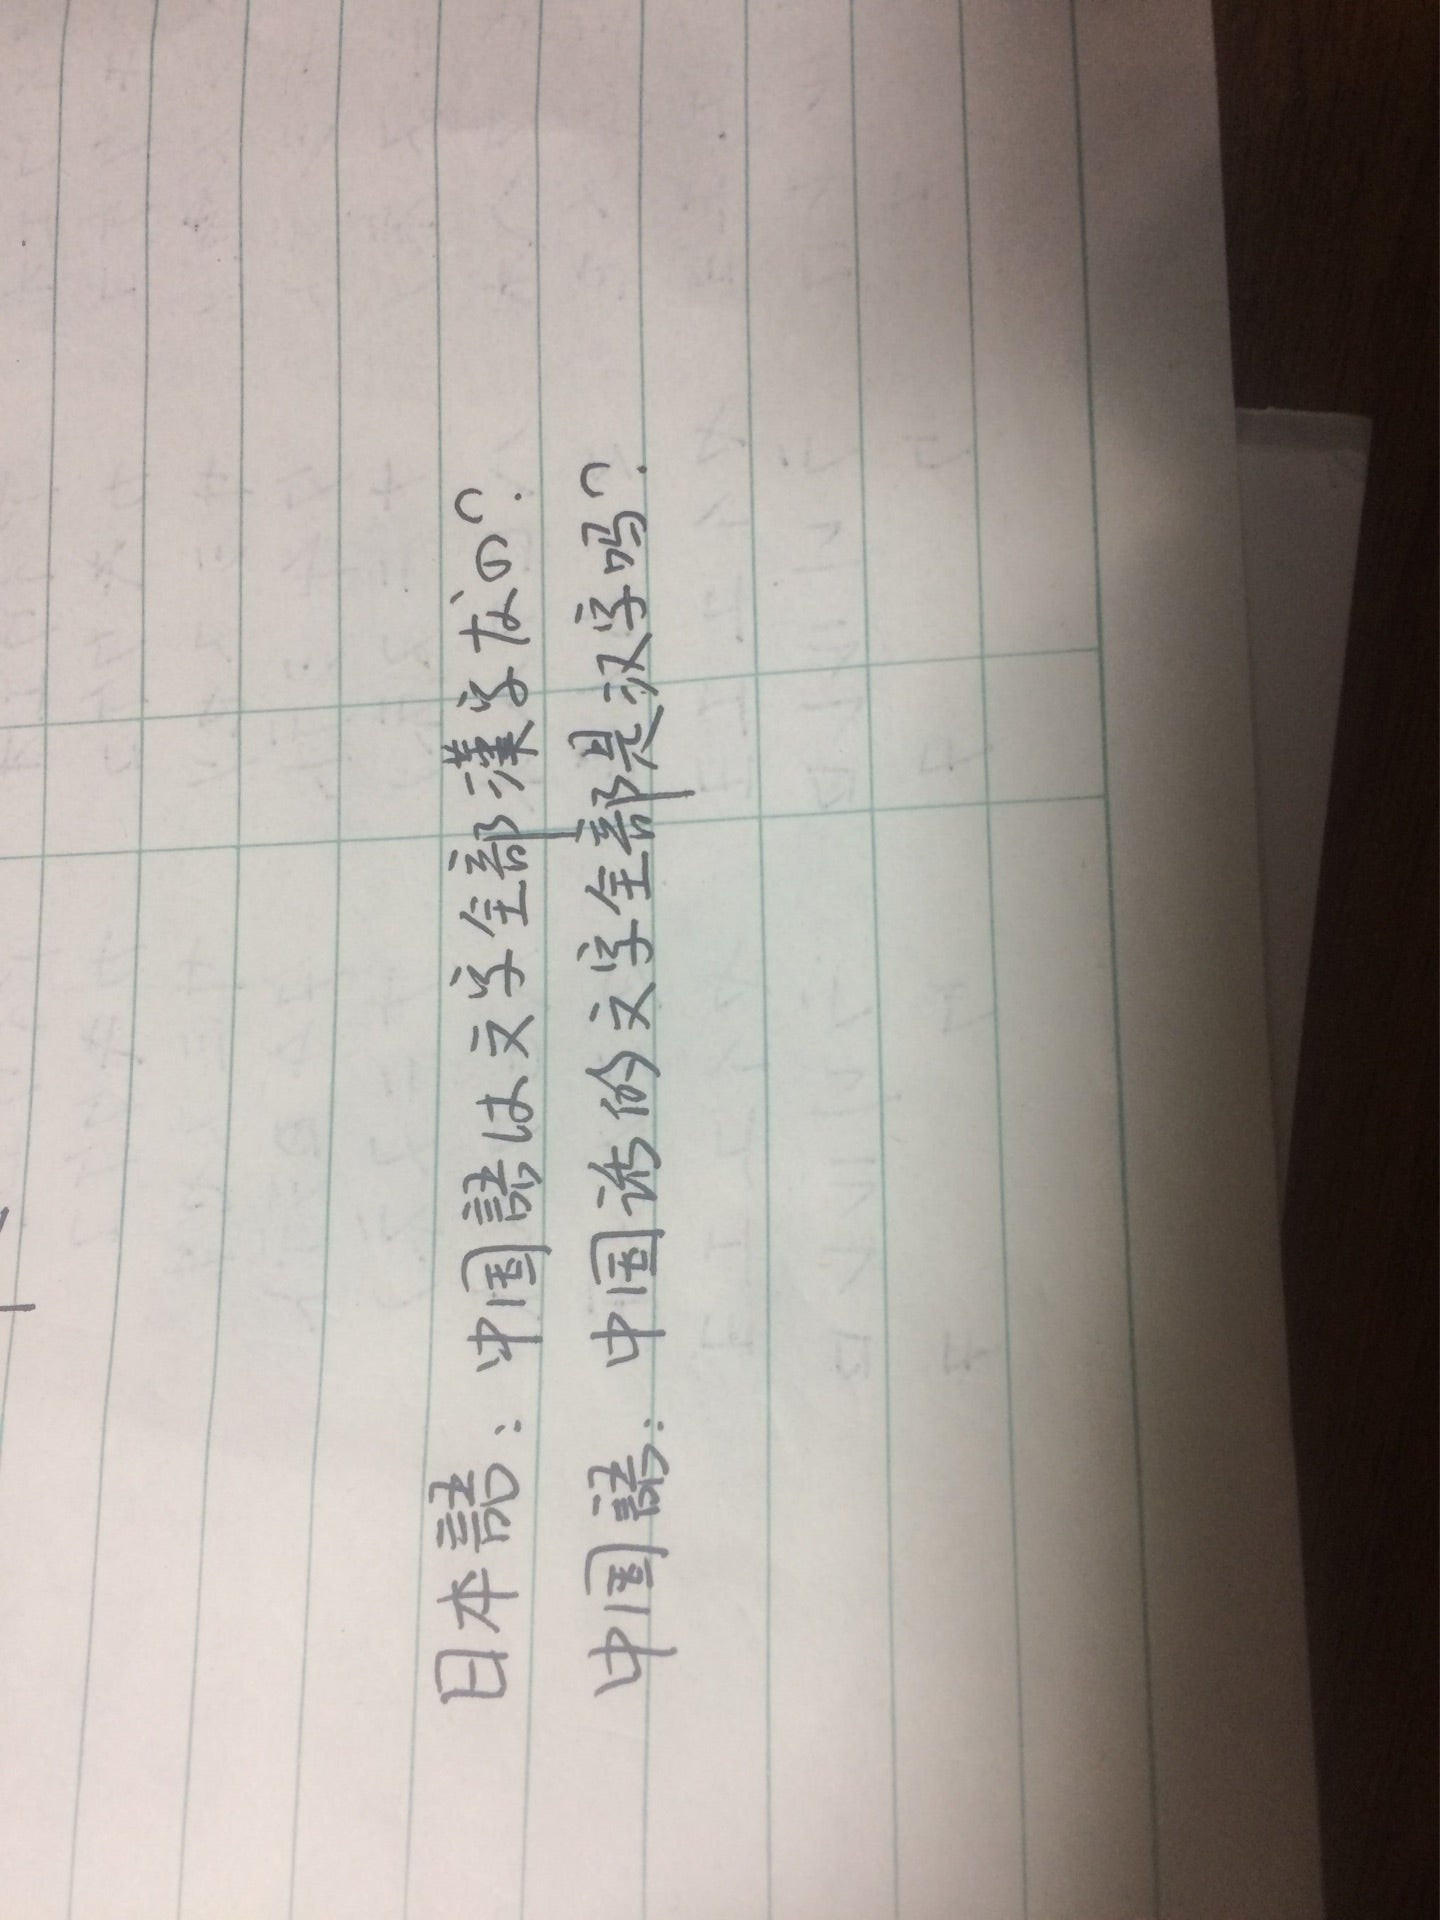 日本語：中国語は文字全部漢字なの？
中国語：中国语的文字全部是汉字吗？